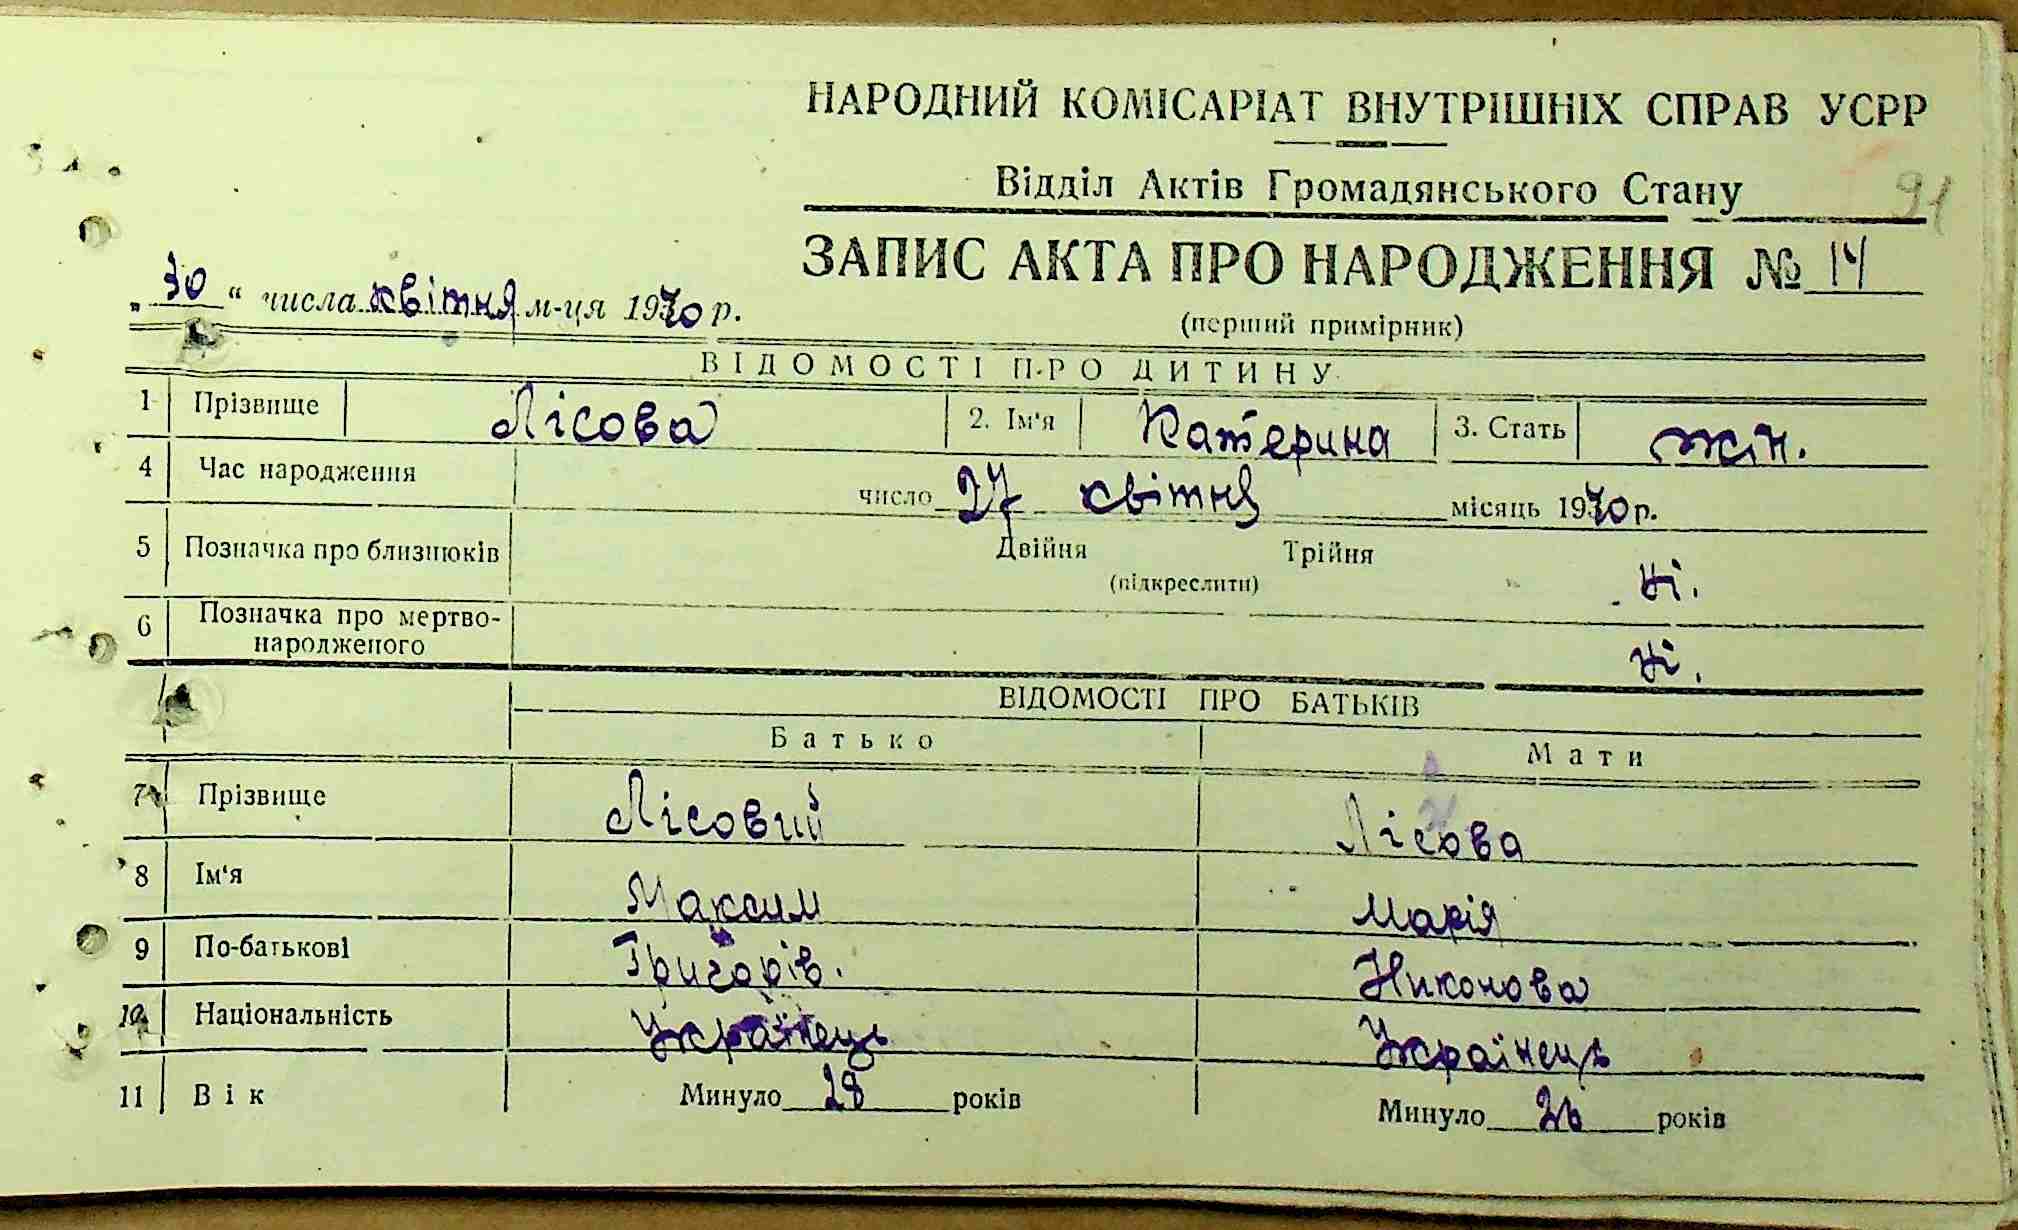 НАРОДНИЙ КОМІСАРІАТ ВНУТРІШНІХ СПРАВ УСРР
Відділ Актів Громадянського Стану 91
ЗАПИС АКТА ПРО НАРОДЖЕННЯ № 14
„30“ числа квітня м-ця 1940 р.
(перший примірник)
ВІДОМОСТІ ПРО ДИТИНУ
1 Прізвище Лісова 2. Ім'я Катерина 3. Стать жін.
4 Час народження число 27 квітня місяць 1940 р.
5 Позначка про близнюків Двійня Трійня ні.
(підкреслити)
6 Позначка про мертво-
народженого ні.
ВІДОМОСТІ ПРО БАТЬКІВ
Батько Мати
7 Прізвище Лісовий Лісова
8 Ім'я Максим Марія
9 По-батькові Григорів. Никонова
10 Національність Українець Українець
11 Вік Минуло 28 років Минуло 26 років